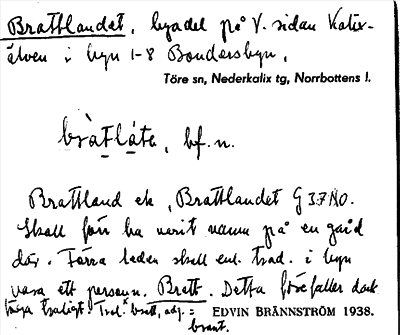 Brattlandet, byadel på V. sidan Kalix-
älven i byn 1-8 Bondersbyn.
Töre sn, Nederkalix tg, Norrbottens l.
bràtláta, bf. n.
Brattland ek, Brattlandet G 37 NO.
Skall förr ha varit namn på en gård
där. Förra leden skall enl. trad. i byn
vara ett personn. Bratt. Detta förefaller dock
föga troligt. Trol. bratt, adj. =
brant.
EDVIN BRÄNNSTRÖM 1938.